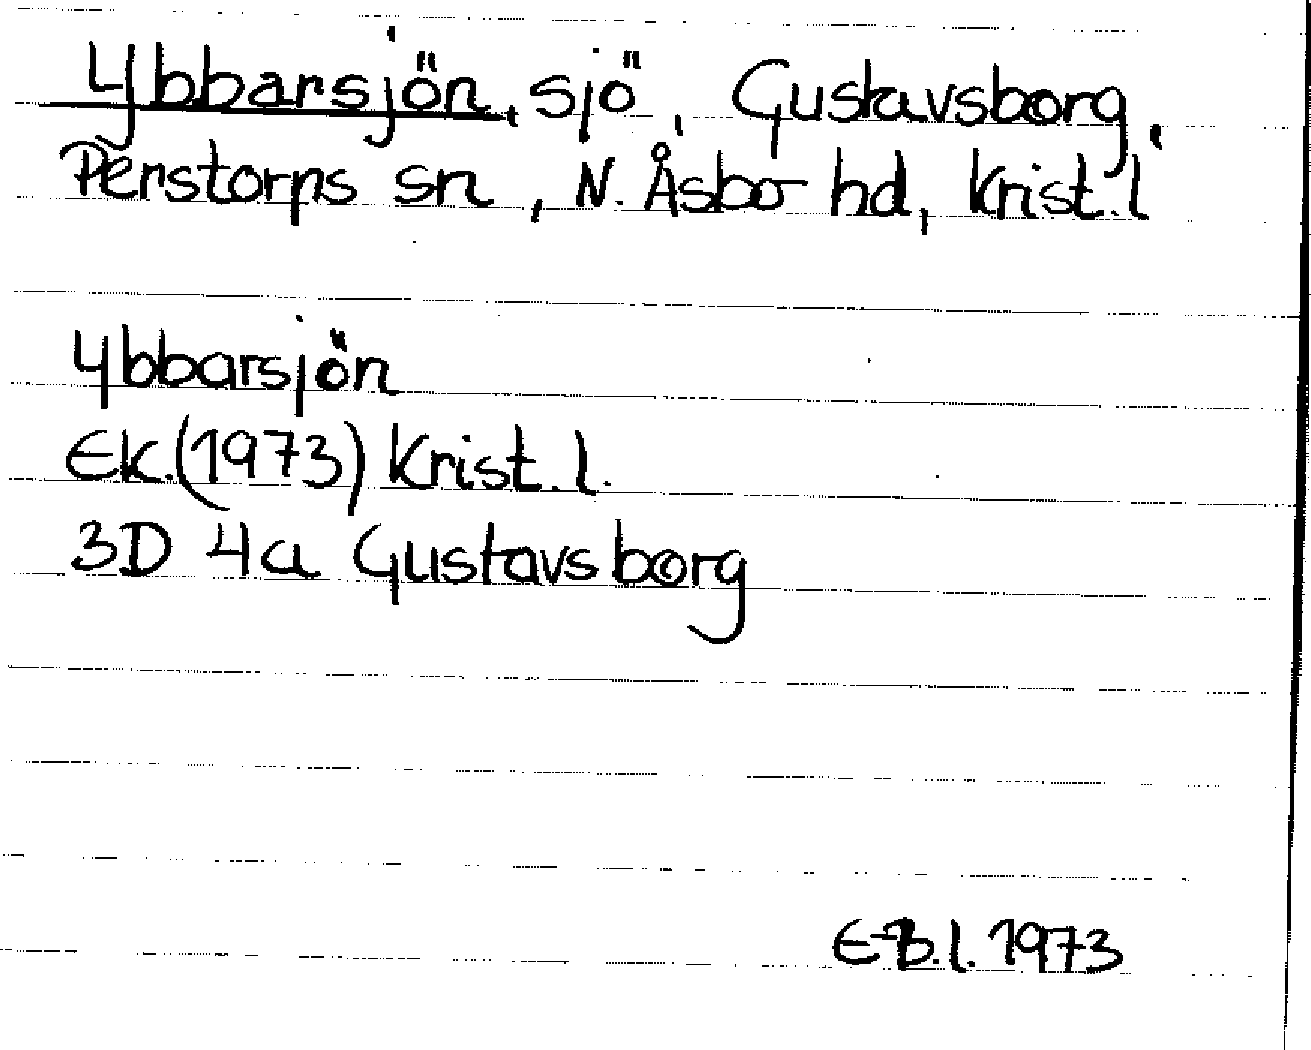 Ybbarsjön, sjö, Gustavsborg,
Perstorps sn, N. Åsbo hd, Krist. l
Ybbarsjön
Ek. (1973) Krist. l.
3D 4a Gustavsborg
E-B. l. 1973